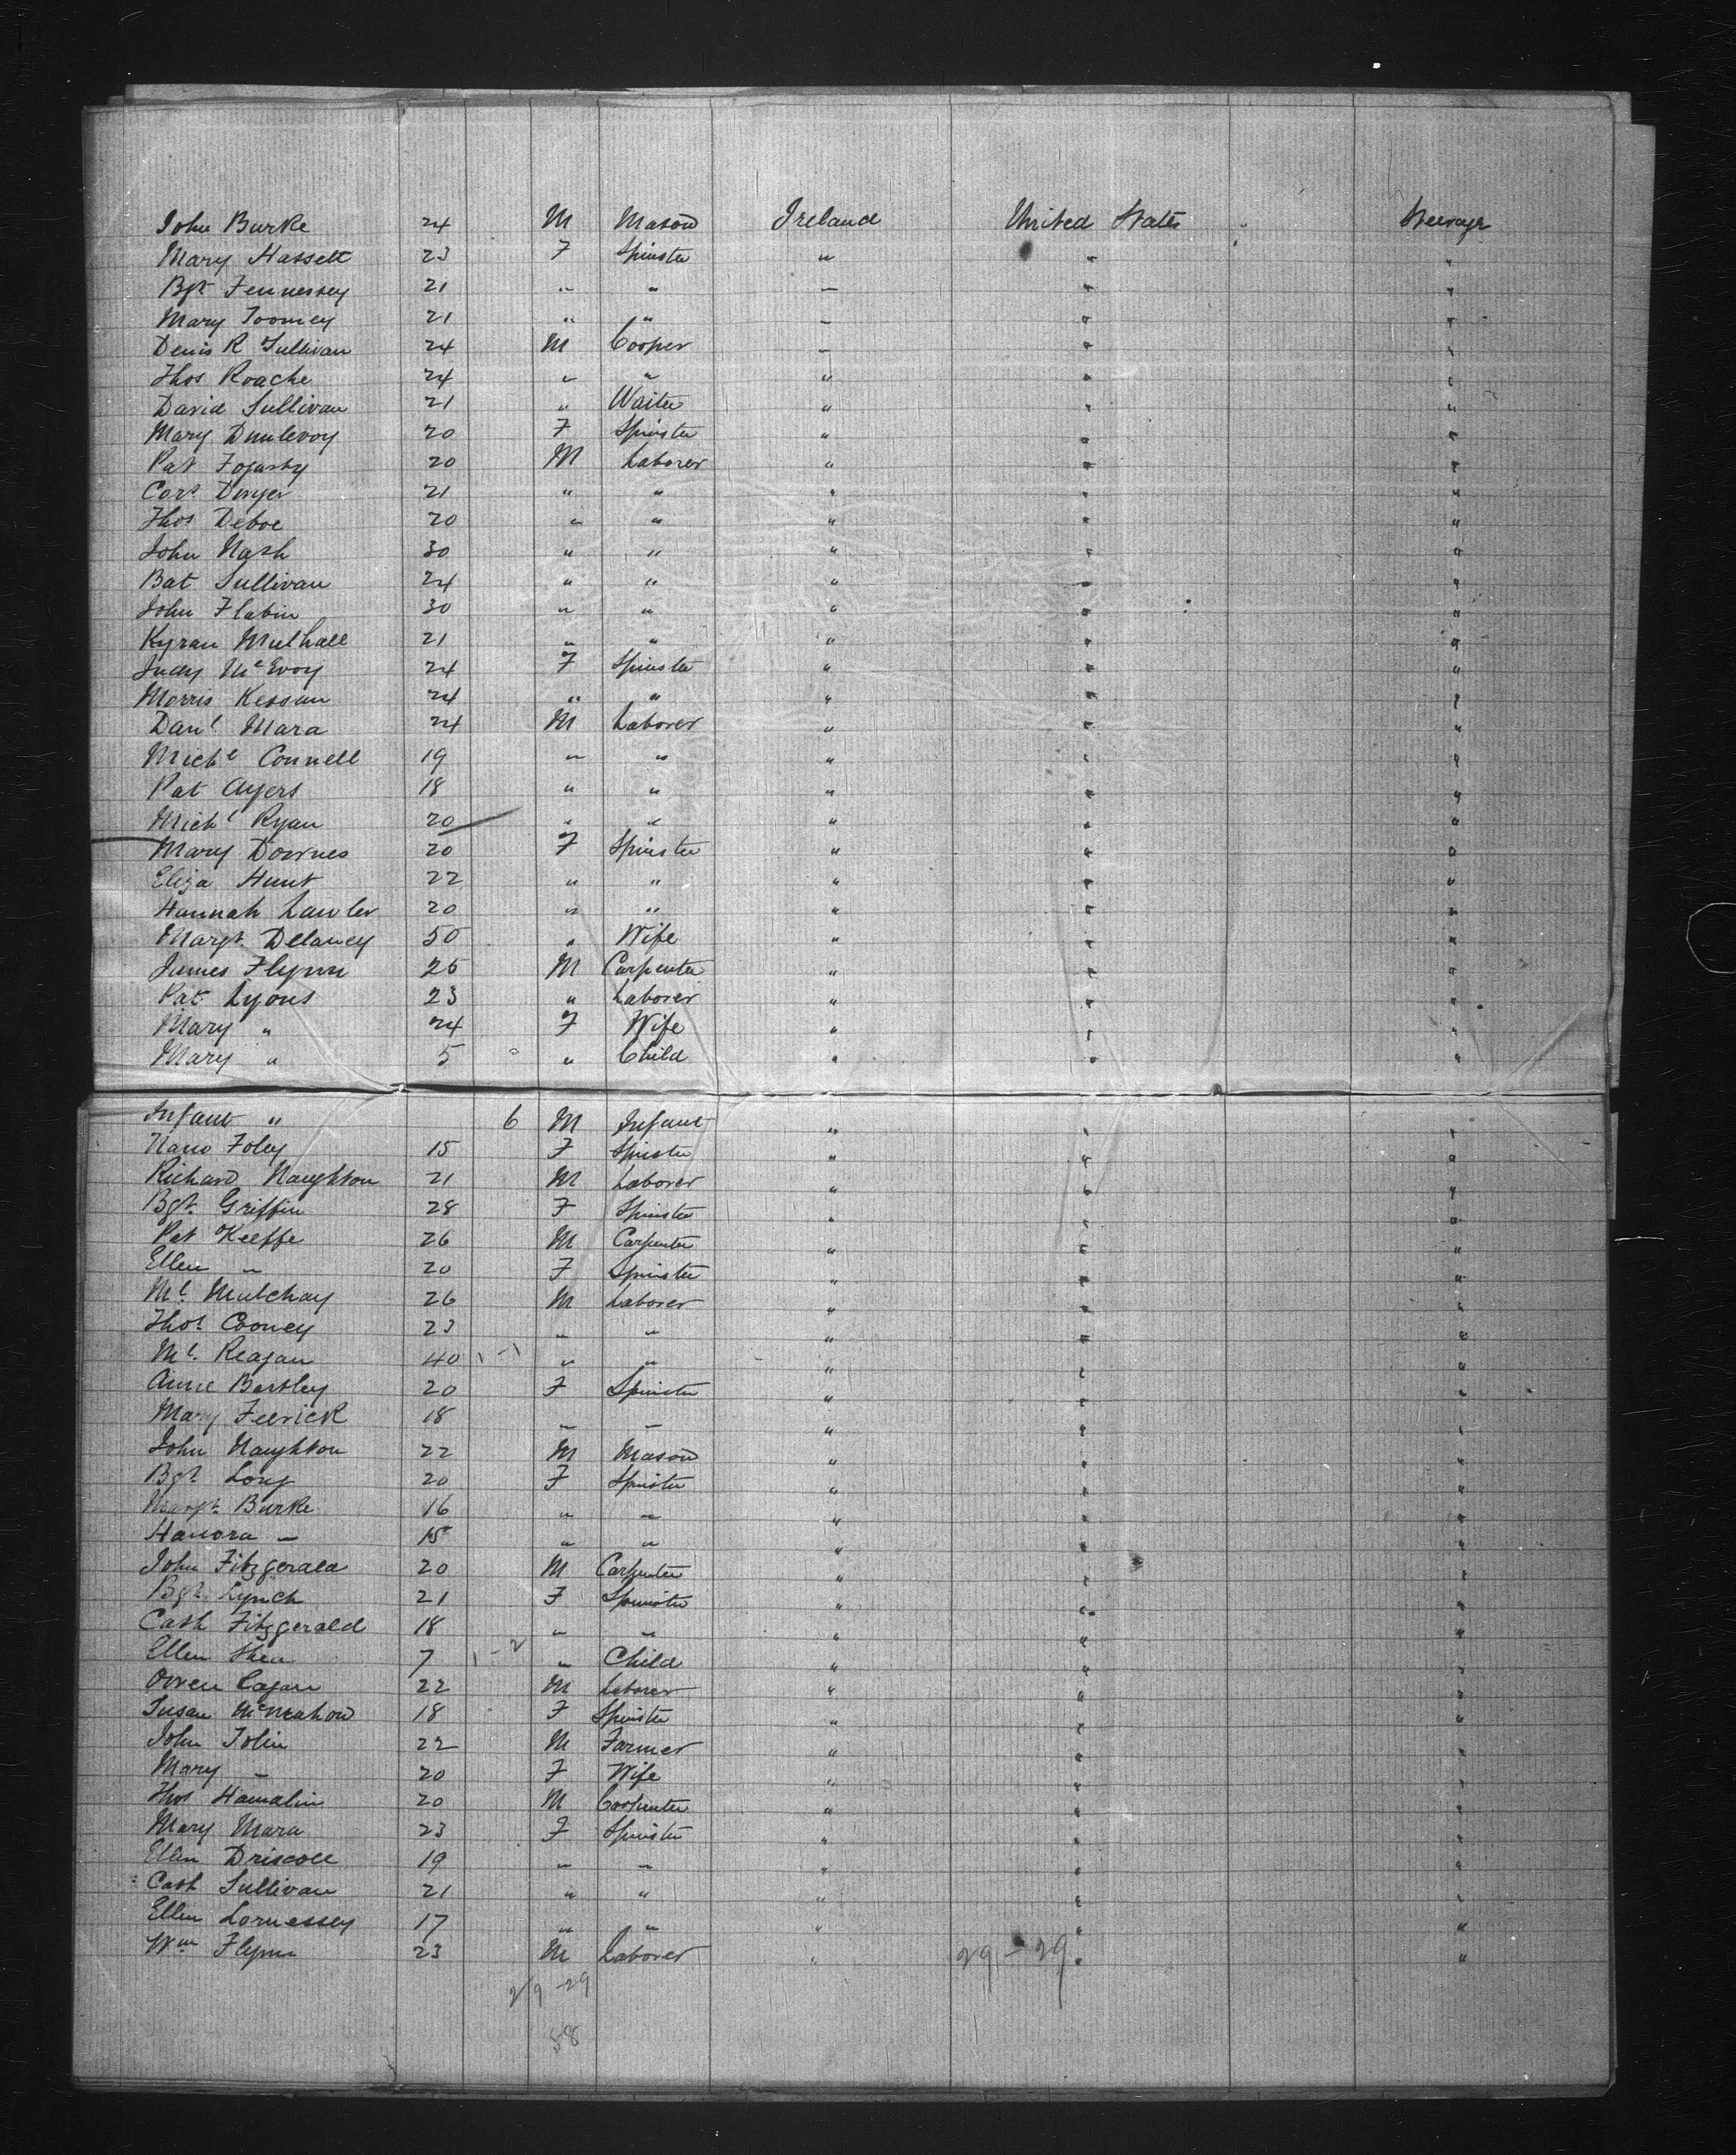 John Burke 24 M Mason Ireland United States Steerage
Mary Hassett 23 F Spinster " " "
Bgt. Fennessey 21 " " " " "
Mary Toomey 21 " " " " "
Denis R Sullivan 24 M Cooper " " "
Thos Roache 24 " " " " "
David Sullivan 21 " Waiter " " "
Mary Dunlevoy 20 F Spinster " " "
Pat Fogarty 20 M Laborer " " "
Cors. Dwyer 21 " " " " "
Thos Deboe 20 " " " " "
John Nash 30 " " " " "
Bat Sullivan 24 " " " " "
John Flabin 30 " " " " "
Kyran Mulhall 21 " " " " "
Judy McEvoy 24 F Spinster " " "
Morris Kessan 24 " " " " "
Danl. Mara 24 M Laborer " " "
Michl Connell 19 " " " " "
Pat Ayers 18 " " " " "
Michl Ryan 20 " " " " "
Mary Downes 20 F Spinster " " "
Eliza Hunt 22 " " " " "
Hannah Lawler 20 " " " " "
Margt. Delaney 50 " Wife " " "
James Flynn 25 M Carpenter " " "
Pat Lyons 23 " Laborer " " "
Mary " 24 F Wife " " "
Mary " 5 " Child " " "
Infant " 6 M Infant " " "
Nano Foley 15 F Spinster " " "
Richard Naughton 21 M Laborer " " "
Bgt. Griffin 28 F Spinster " " "
Pat Keeffe 26 M Carpenter " " "
Ellen " 20 F Spinster " " "
Ml. Mulchay 26 M Laborer " " "
Thos. Cooney 23 " " " " "
Ml. Reagan 40 1-1 " " " " "
Anne Bartley 20 F Spinster " " "
Mary Feerick 18 " " " " "
John Naughton 22 M Mason " " "
Bgt. Long 20 F Spinster " " "
Margt. Burke 16 " " " " "
Hanora " 15 " " " " "
John Fitzgerald 20 M Carpenter " " "
Bgt. Lynch 21 F Spinster " " "
Cath Fitzgerald 18 " " " " "
Ellen Shea 7 1-2 " Child " " "
Owen Cagan 22 M Laborer " " "
Susan McMahon 18 F Spinster " " "
John Tobin 22 M Farmer " " "
Mary " 20 F Wife " " "
Thos Hamalin 20 M Carpenter " " "
Mary Mara 23 F Spinster " " "
Ellen Driscoll 19 " " " " "
Cath Sullivan 21 " " " " "
Ellen Lornessey 17 " " " " "
Wm Flynn 23 M Laborer " 29-29 " "
29-29
58